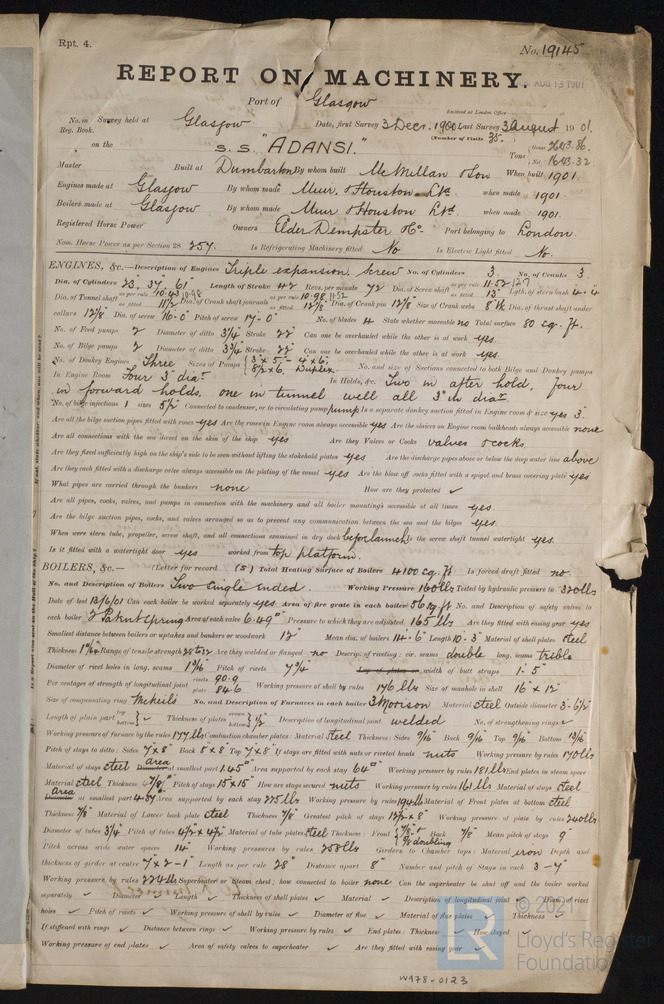 Rpt. 4.
No. 19145
REPORT ON MACHINERY.
AUG 13 1901
Port of Glasgow
Received at London Office
No. in Survey held at Glasgow Date, first Survey 3 Decr. 1900 Last Survey 3 August 1901.
Reg. Book. (Number of Visits 35.
on the S.S. "ADANSI." Tons { Gross 2643.86. Net 1643.32
Master Built at Dumbarton By whom built McMillan & Son When built 1901.
Engines made at Glasgow By whom made Muir & Houston Ltd. when made 1901.
Boilers made at Glasgow By whom made Muir & Houston Ltd. when made 1901.
Registered Horse Power Owners Elder Dempster & Co. Port belonging to London.
Nom. Horse Power as per Section 28 257. Is Refrigerating Machinery fitted No Is Electric Light fitted No.
ENGINES, &c.—Description of Engines Triple expansion, Screw No. of Cylinders 3. No. of Cranks 3
Dia. of Cylinders 23" 37" 61" Length of Stroke 42 Revs. per minute 72 Dia. of Screw shaft as per rule 11.52 as fitted 13" Lgth. of stern bush 4-4
Dia. of Tunnel shaft as per rule 10.43 as fitted 11 1/2 Dia. of Crank shaft journals as per rule 10.98 as fitted 12 1/8 Dia. of Crank pin 12 1/8 Size of Crank webs Dia. of thrust shaft under
collars 12 1/8 Dia. of screw 16-0 Pitch of screw 17-0" No. of blades 4 State whether moveable no Total surface 80 sq. ft.
No. of Feed pumps 2 Diameter of ditto 3 1/4 Stroke 22" Can one be overhauled while the other is at work yes.
No. of Bilge pumps 2 Diameter of ditto 3 3/4 Stroke 22" Can one be overhauled while the other is at work yes.
No. of Donkey Engines Three Sizes of Pumps { Duplex. No. and size of Suctions connected to both Bilge and Donkey pumps
In Engine Room Four 3" diar. In Holds, &c. Two in after hold, four
in forward holds, one in tunnel well all 3" in diar.
No. of bilge injections 1 sizes 5 1/2 Connected to condenser, or to circulating pump pump Is a separate donkey suction fitted in Engine room & size yes 3"
Are all the bilge suction pipes fitted with roses yes Are the roses in Engine room always accessible yes Are the sluices on Engine room bulkheads always accessible none
Are all connections with the sea direct on the skin of the ship yes Are they Valves or Cocks valves & cocks.
Are they fixed sufficiently high on the ship's side to be seen without lifting the stokehold plates yes Are the discharge pipes above or below the deep water line above
Are they each fitted with a discharge valve always accessible on the plating of the vessel yes Are the blow off cocks fitted with a spigot and brass covering plate yes
What pipes are carried through the bunkers none How are they protected ✓
Are all pipes, cocks, valves, and pumps in connection with the machinery and all boiler mountings accessible at all times yes.
Are the bilge suction pipes, cocks, and valves arranged so as to prevent any communication between the sea and the bilges yes.
When were stern tube, propeller, screw shaft, and all connections examined in dry dock before launch Is the screw shaft tunnel watertight yes.
Is it fitted with a watertight door yes worked from top platform.
BOILERS, &c.— (Letter for record (S) Total Heating Surface of Boilers 4100 sq. ft Is forced draft fitted no.
No. and Description of Boilers Two Single Ended. Working Pressure 160 lbs Tested by hydraulic pressure to 320 lbs
Date of test 13/6/01 Can each boiler be worked separately yes Area of fire grate in each boiler 56 sq ft No. and Description of safety valves to
each boiler 2 Patent Spring Area of each valve 6.49" Pressure to which they are adjusted 165 lbs Are they fitted with easing gear yes
Smallest distance between boilers or uptakes and bunkers or woodwork 12" Mean dia. of boilers 14-6" Length 10-3" Material of shell plates steel
Thickness Range of tensile strength 28 to 32 Are they welded or flanged no Descrip. of riveting: cir. seams double long. seams treble
Diameter of rivet holes in long. seams 1 3/16 Pitch of rivets 7 3/4 width of butt straps 1-5"
Per centages of strength of longitudinal joint rivets 90.9 plate 84.6 Working pressure of shell by rules 176 lbs Size of manhole in shell 16" x 12"
Size of compensating ring McNeils No. and Description of Furnaces in each boiler 3 Morison Material steel Outside diameter 3-6 1/2"
Length of plain part top bottom } ✓ Thickness of plates crown bottom } 1/2 Description of longitudinal joint welded No. of strengthening rings ✓
Working pressure of furnace by the rules 177 lbs Combustion chamber plates: Material steel Thickness: Sides 9/16 Back 9/16 Top 9/16 Bottom 13/16
Pitch of stays to ditto: Sides 7 x 8" Back 8" x 8" Top 7" x 8" If stays are fitted with nuts or riveted heads nuts Working pressure by rules 170 lbs
Material of stays steel Area at smallest part 1.45" Area supported by each stay 64" Working pressure by rules 181 lbs End plates in steam space:
Material steel Thickness Pitch of stays 15 x 15" How are stays secured nuts Working pressure by rules 161 lbs Material of stays steel
Area at smallest part Area supported by each stay 225 Working pressure by rules 194 lbs Material of Front plates at bottom steel
Thickness 7/8 Material of Lower back plate steel Thickness 7/8 Greatest pitch of stays Working pressure of plate by rules 200 lbs
Diameter of tubes 3 1/4 Pitch of tubes 4 1/2 x 4 1/2 Material of tube plates steel Thickness: Front Back 7/8 Mean pitch of stays 9"
Pitch across wide water spaces 14" Working pressures by rules 258 lbs Girders to Chamber tops: Material iron Depth and
thickness of girder at centre 7 x 2-1" Length as per rule 28" Distance apart 8" Number and pitch of Stays in each 3-7"
Working pressure by rules 224 lbs Superheater or Steam chest; how connected to boiler none Can the superheater be shut off and the boiler worked
separately ✓ Diameter ✓ Length ✓ Thickness of shell plates ✓ Material ✓ Description of longitudinal joint ✓ Diam. of rivet
holes ✓ Pitch of rivets ✓ Working pressure of shell by rules ✓ Diameter of flue ✓ Material of flue plates ✓ Thickness ✓
If stiffened with rings ✓ Distance between rings ✓ Working pressure by rules ✓ End plates: Thickness ✓ How stayed ✓
Working pressure of end plates ✓ Area of safety valves to superheater ✓ Are they fitted with easing gear ✓
W978-0123
© 2021
LR
Lloyd's Register
Foundation